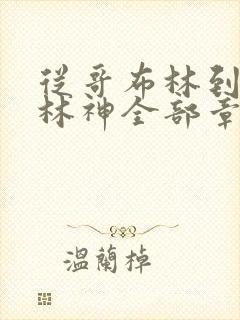 從哥布林到
林神全部章
溫蘭棹